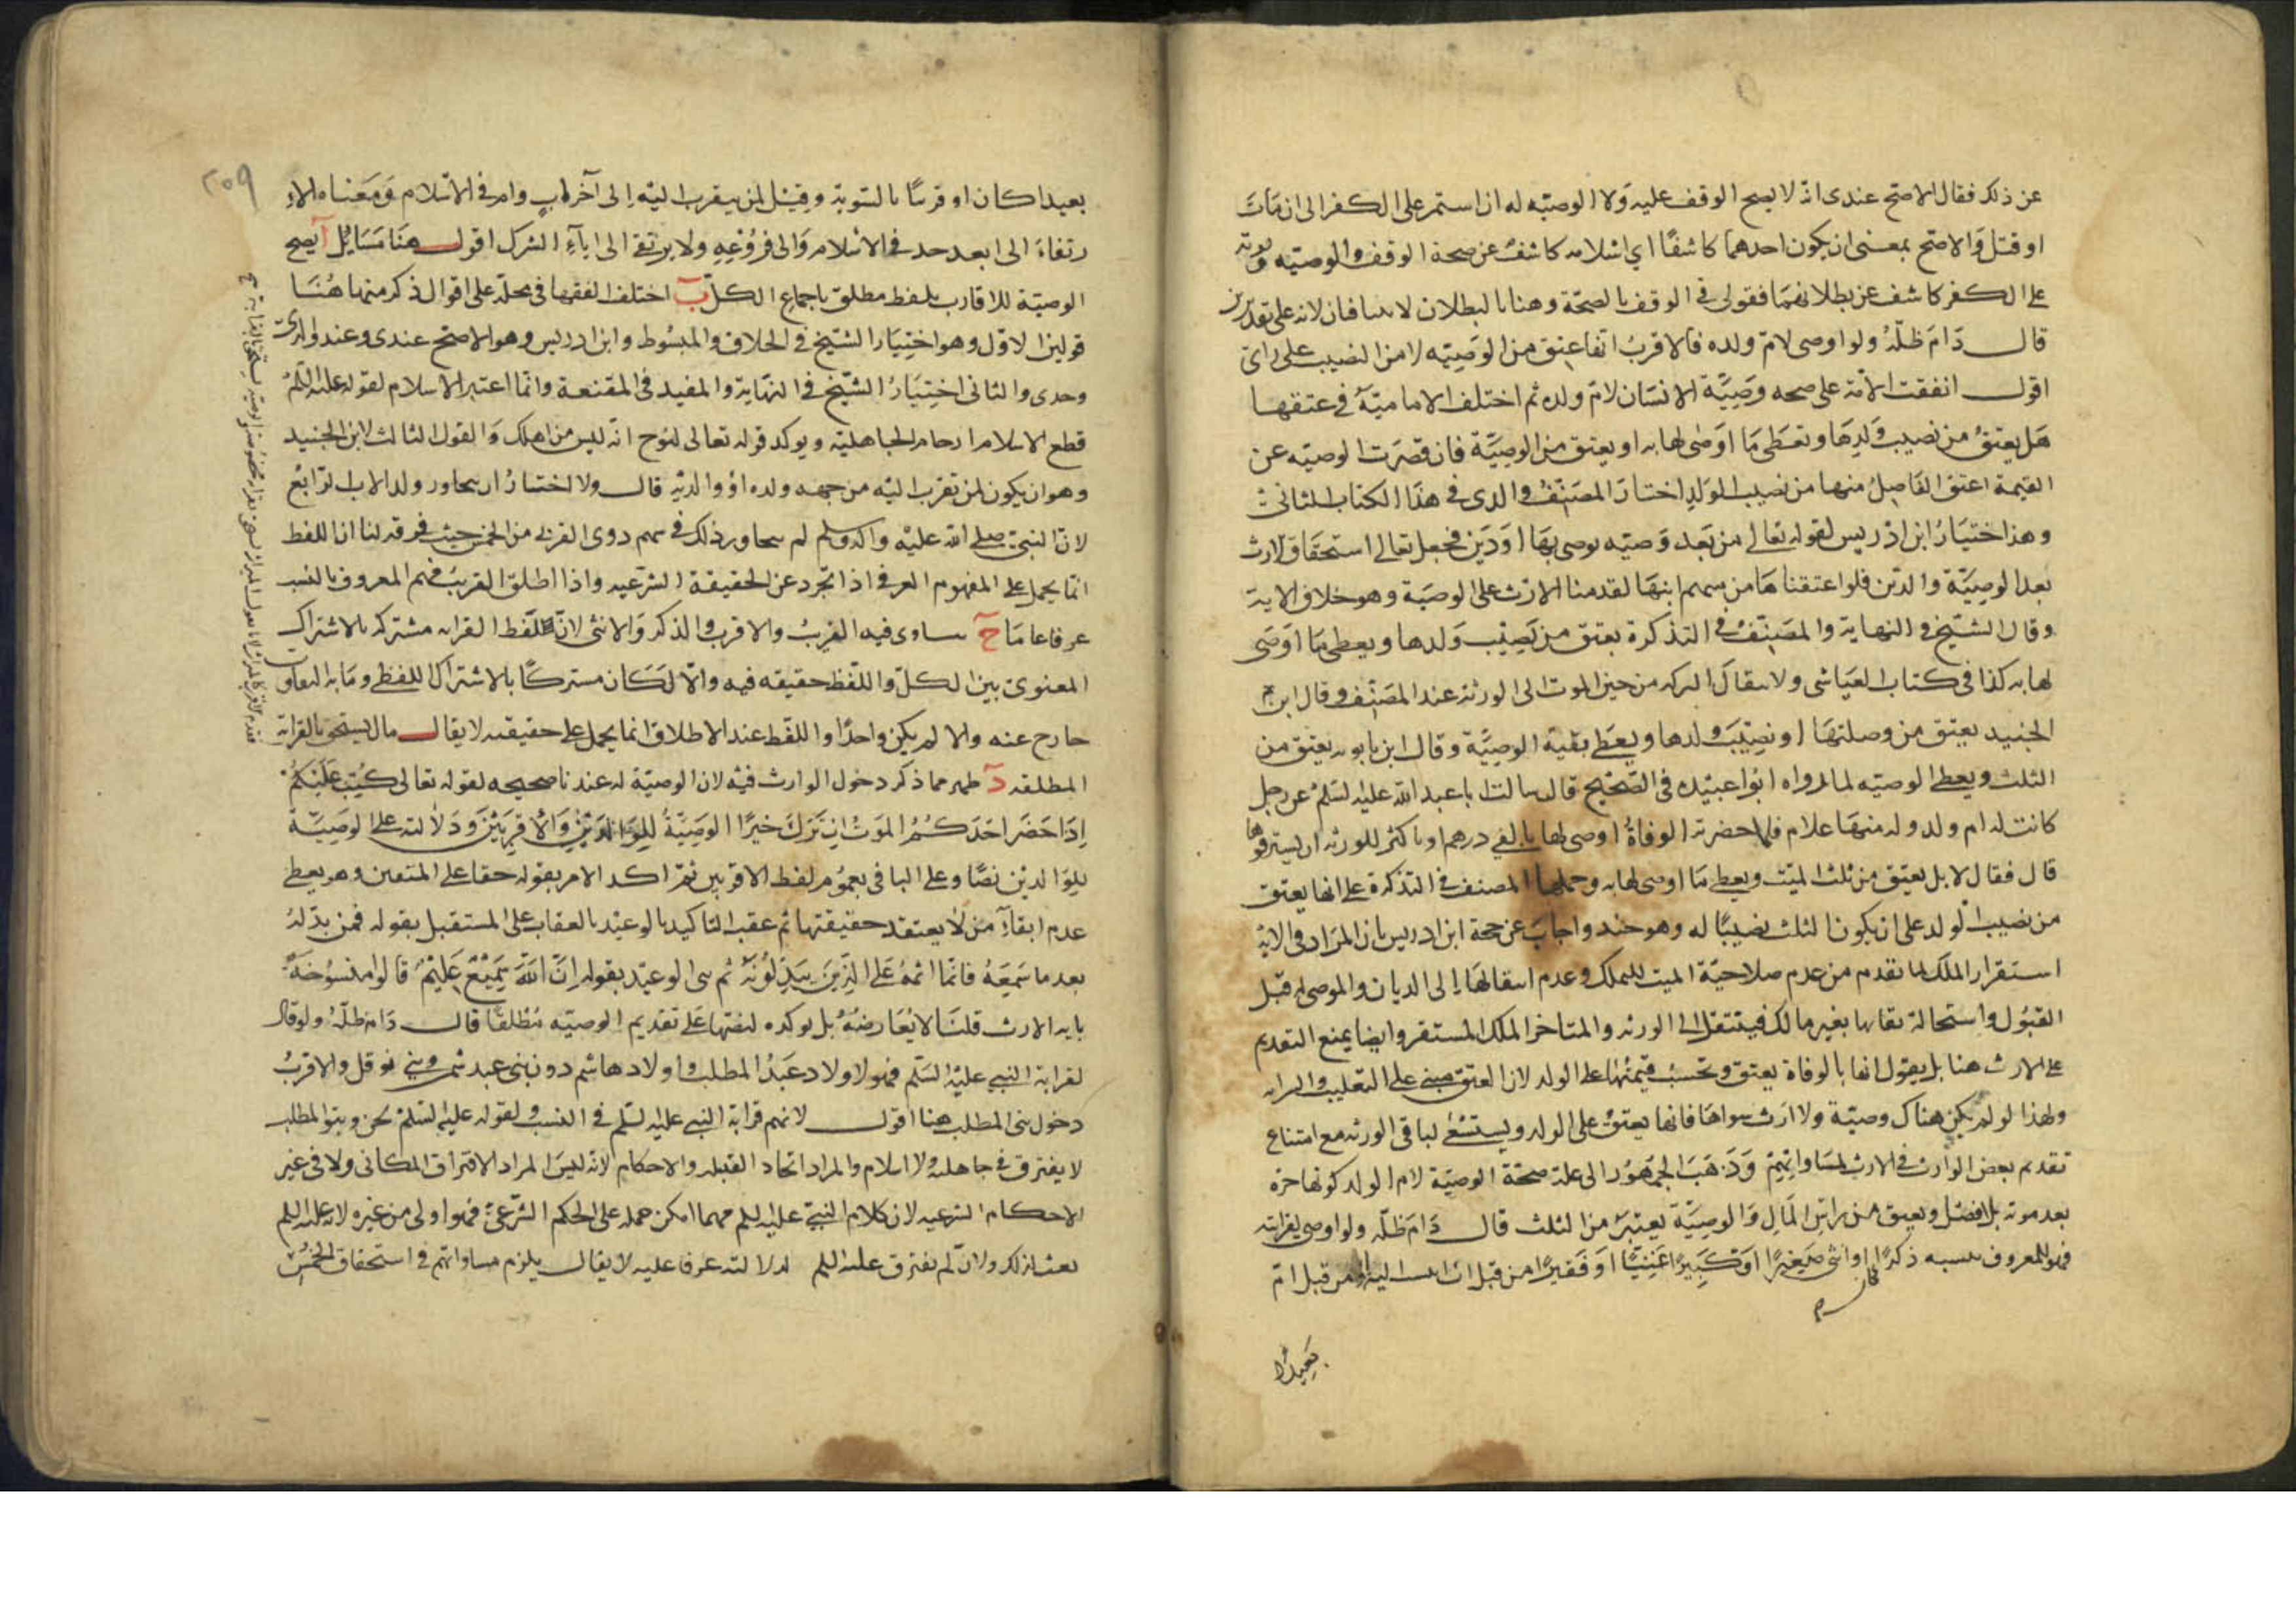 عن ذلك فقال الاصح عندى انه لا يصح الوقف عليه ولا الوصيه له ان استمر على الكفر الى ان مات
او قتل والاصح بمعنى ان يكون احدهما كاشفا اي اسلامه كاشف عن صحة الوقف والوصيه وموته
على الكفر كاشف عن بطلانهما فقولى فى الوقف بالصحة وهنا بالبطلان لا يتنافيان لانه على تقديرين
قال دام ظله ولو اوصى لام ولده فالاقرب انها تنعتق من الوصيه لا من النصيب على راى
اقول اتفقت الامة على صحه وصية الانسان لام ولده ثم اختلف الامامية فى عتقها
هل يعتق من نصيب ولدها وتعطى ما اوصى لها به او يعتق من الوصية فان قصرت الوصيه عن
القيمة اعتق الفاضل منها من نصيب الولد اختار المصنف والدى فى هذا الكتاب الثانى
وهذا اختيار ابن ادريس لقوله تعالى من بعد وصيه يوصى بها او دين فجعل تعالى استحقاق الارث
بعد الوصية والدين فلو اعتقناها من سهم ابنها لقدمنا الارث على الوصية وهو خلاف الاية
وقال الشيخ فى النهاية والمصنف فى التذكرة يعتق من نصيب ولدها ويعطى ما اوصى
لها به كذا فى كتاب العباسى ولانتقال التركه من حين الموت الى الورثة عند المصنف وقال ابن
الجنيد يعتق من وصلتها او نصيب ولدها ويعطى بقية الوصية وقال ابن بابويه يعتق من
الثلث ويعطى الوصيه لما رواه ابو عبيده فى الصحيح قال سالت ابا عبد الله عليه السلم عن رجل
كانت له ام ولد وله منها غلام فلما حضرته الوفاة اوصى لها بالفى درهم او باكثر للورثه ان يسترقوها
قال فقال لا بل يعتق من ثلث الميت ويعطى ما اوصى لها به وحملها المصنف فى التذكرة على انها يعتق
من نصيب الولد على ان يكون الثلث نصيبا له وهو جيد واجاب عن حجة ابن ادريس بان المراد فى الاية
استقرار الملك لما تقدم من عدم صلاحية الميت للتملك وعدم انتقالها الى الديان والموصى له قبل
القبول واستحالة بقائها بغير مالك فينتقل الى الورثه والمتاخر الملك المستقر وايضا يمنع التقديم
على الارث هنا بل يقول انها بالوفاة يعتق وتحسب قيمتها على الولد لان العتق مبنى على التغليب والسرايه
ولهذا لو لم يكن هناك وصية ولا ارث سواها فانها يعتق على الولد ويستسعى لباقى الورثه مع امتناع
تقديم بعض الوارث فى الارث لمساواتهم وذهب الجمهور الى علة صحة الوصية لام الولد كونها حرة
بعد موته بلا فصل ويعتق من راس المال والوصية يعتبر من الثلث قال دام ظله ولو اوصى لقرابته
فهو للمعروف بنسبه ذكرا كان او انثى صغيرا او كبيرا غنيا او فقيرا من قبل اب انتسب اليه او من قبل ام
بعيدا
٢٠٩
بعيدا كان او قريبا بالسوية وقيل لمن يتقرب اليه الى آخر اب وام فى الاسلام ومعناه الا
رتقاء الى ابعد جد فى الاسلام والى فروعه ولا يرتقى الى اباء الشرك اقول هنا مسايل آ يصح
الوصية للاقارب بلفظ مطلق باجماع الكل ب اختلف الفقها فى محله على اقوال ذكر منها هنا
قولين الاول وهو اختيار الشيخ فى الخلاف والمبسوط وابن ادريس وهو الاصح عندى وعند والدى
وجدى والثانى اختيار الشيخ فى النهاية والمفيد فى المقنعة وانما اعتبر الاسلام لقوله عليه السلم
قطع الاسلام ارحام الجاهلية ويوكد قوله تعالى لنوح انه ليس من اهلك والقول الثالث لابن الجنيد
وهو ان يكون لمن تقرب اليه من جهه ولده او والديه قال ولا اختار ان يتجاوز ولد الاب الرابع
لان النبى صلى الله عليه واله وسلم لم يتجاوز ذلك فى سهم ذوى القربى من الخمس حيث فرقه لنا ان اللفظ
انما يحمل على المفهوم العرفى اذا تجرد عن الحقيقة الشرعيه واذا اطلق القريب فهم المعروف بالنسب
عرفا عاما ج يتساوى فيه القريب والاقرب والذكر والانثى لان لفظ القرابه مشتركه بالاشتراك
المعنوى بين الكل واللفظ حقيقه فيه والا لكان مشتركا بالاشتراك اللفظى وما به التفاوت
خارج عنه والا لم يكن واحدا واللفظ عند الاطلاق انما يحمل على حقيقته لا يقال مال يستحق بالقرابة
المطلقه د ظهر مما ذكر دخول الوارث فيه لان الوصية له عندنا صحيحه لقوله تعالى كتب عليكم
اذا حضر احدكم الموت ان ترك خيرا الوصية للوالدين والاقربين ودلالته على الوصية
للوالدين نصا وعلى الباقى بعموم لفظ الاقربين ثم اكد الامر بقوله حقا على المتقين وهو يعطى
عدم ابقاء من لا يعتقد حقيقتها ثم عقب التاكيد بالوعيد بالعقاب على المستقبل بقوله فمن بدله
بعد ما سمعه فانما اثمه على الذين يبدلونه ثم سى الوعيد بقوله ان الله سميع عليم قالوا منسوخة
باية الارث قلنا لا يعارضه بل يوكده لنصها على تقديم الوصيه مطلقا قال دام ظله ولو قال
لقرابة النبي عليه السلم فهو لاولاد عبد المطلب واولاد هاشم دون بنى عبد شمس وبني نوفل والاقرب
دخول بنى المطلب هنا اقول لانهم قرابة النبي عليه السلم فى النسب ولقوله عليه السلم نحن وبنو المطلب
لا يفترق فى جاهلية ولا اسلام والمراد اتحاد القبيله والاحكام لانه ليس المراد الافتراق المكانى ولا فى غير
الاحكام الشرعيه لان كلام النبى عليه السلم مهما امكن حمله على الحكم الشرعى فهو اولى من غيره لانه عليه السلم
بعث لذلك ولان لم يفترق عليه السلم لدلالته عرفا عليه لا يقال يلزم مساواتهم فى استحقاق الخمس